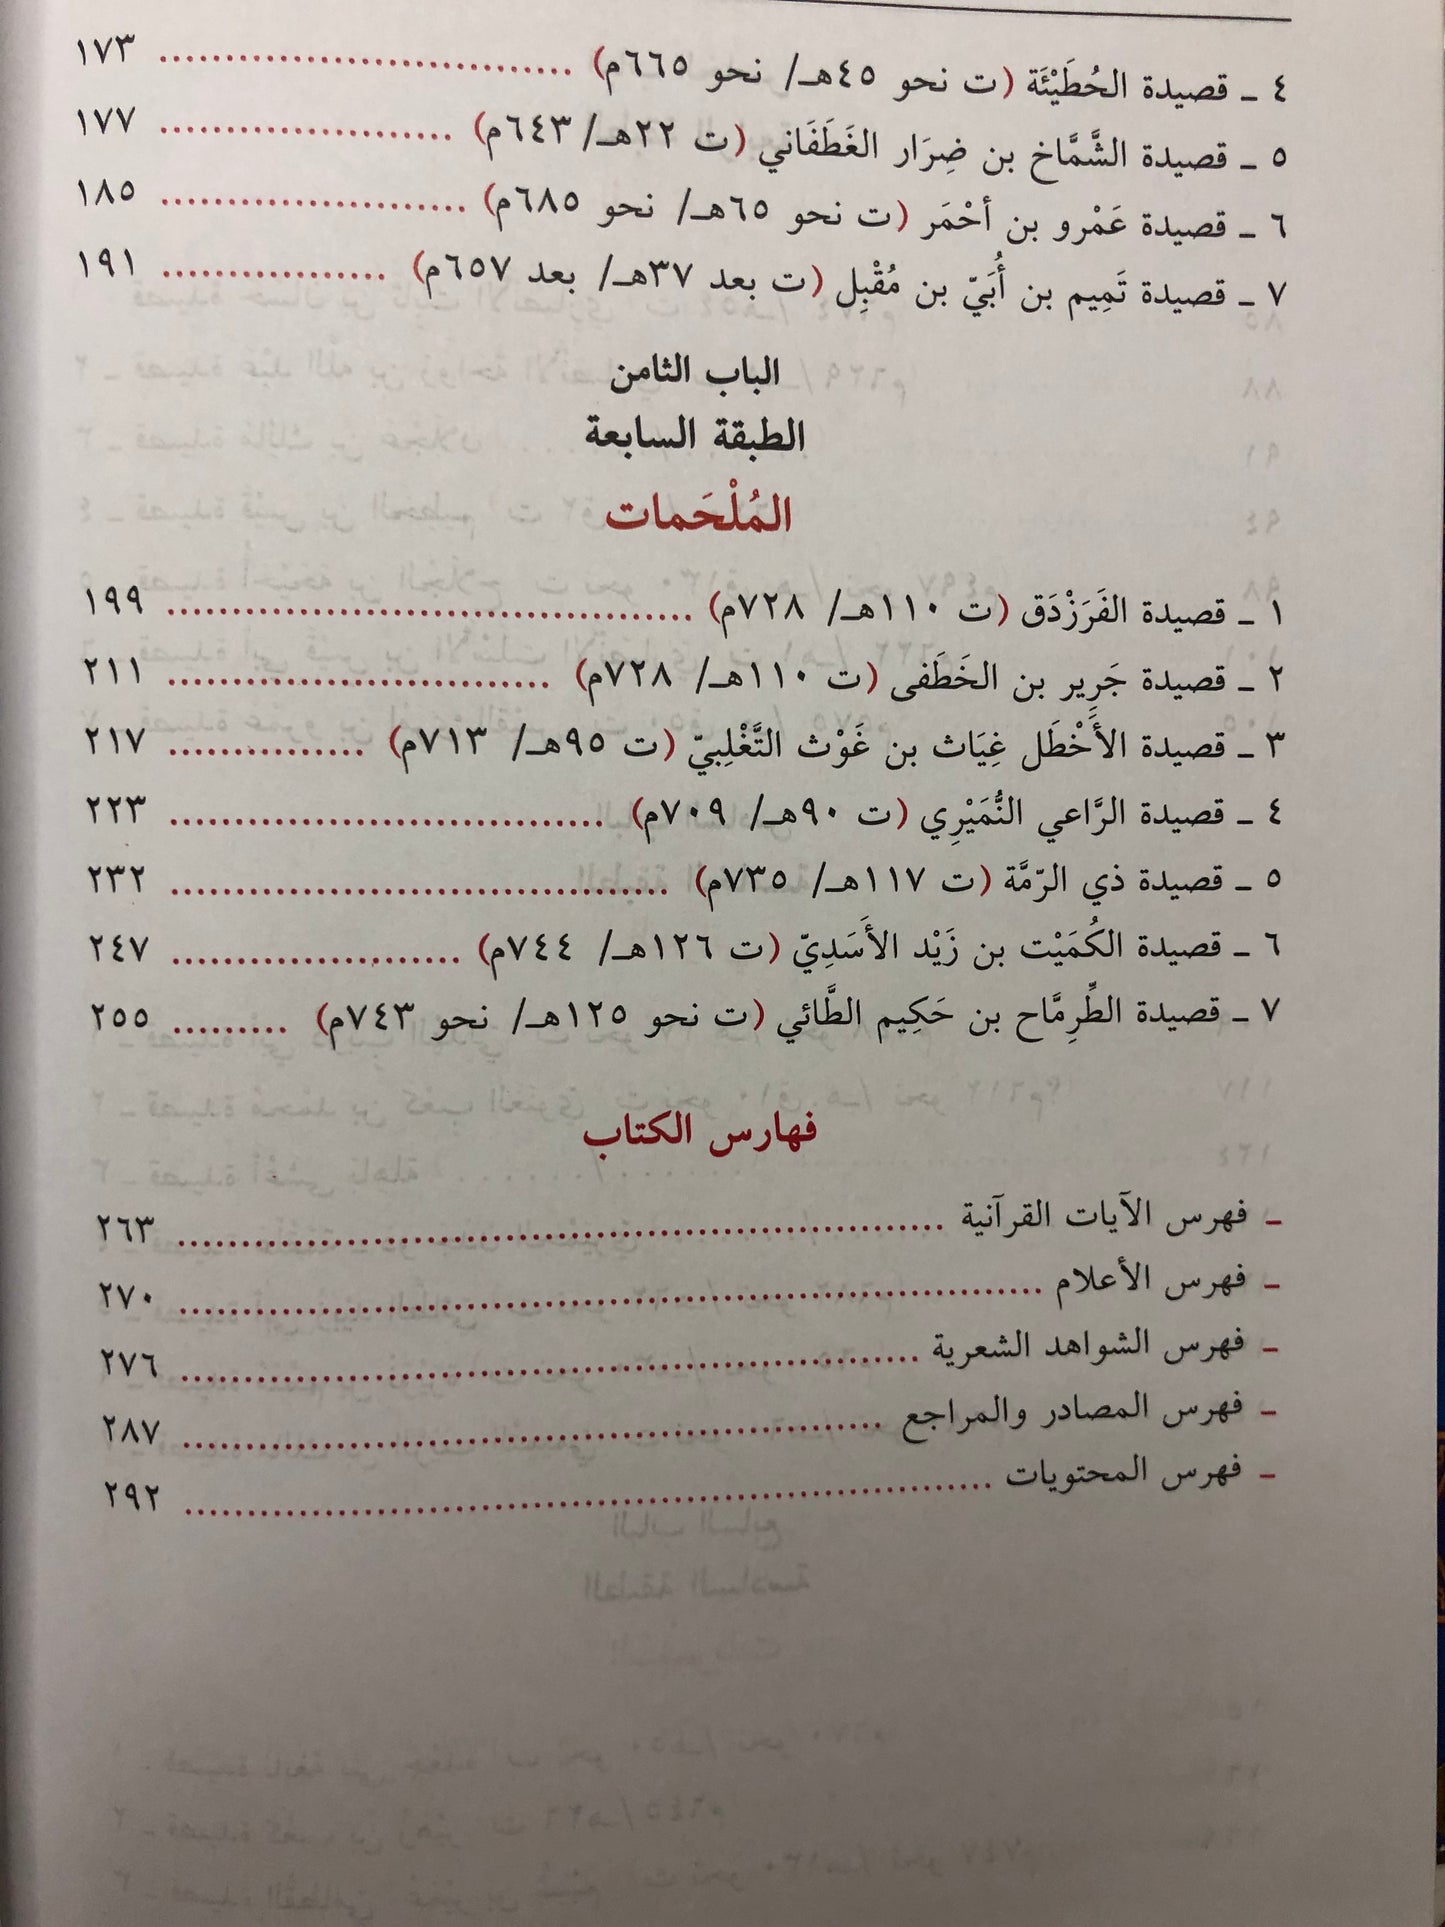 ٤ ـ قصيدة الحُطَيْئَة (ت نحو ٤٥هـ/ نحو ٦٦٥م) ................................ ١٧٣
٥ ـ قصيدة الشَّمَّاخ بن ضِرَار الغَطَفَاني (ت ٢٢هـ/ ٦٤٣م) ....................... ١٧٧
٦ ـ قصيدة عَمْرو بن أحْمَر (ت نحو ٦٥هـ/ نحو ٦٨٥م) ........................ ١٨٥
٧ ـ قصيدة تَمِيم بن أُبَيّ بن مُقْبِل (ت بعد ٣٧هـ/ بعد ٦٥٧م) .................. ١٩١
الباب الثامن
الطبقة السابعة
المُلْحَمات
١ ـ قصيدة الفَرَزْدَق (ت ١١٠هـ/ ٧٢٨م) ......................................... ١٩٩
٢ ـ قصيدة جَرِير بن الخَطَفى (ت ١١٠هـ/ ٧٢٨م) .............................. ٢١١
٣ ـ قصيدة الأَخْطَل غِيَاث بن غَوْث التَّغْلِبيّ (ت ٩٥هـ/ ٧١٣م) ................ ٢١٧
٤ ـ قصيدة الرَّاعي النُّمَيْرِي (ت ٩٠هـ/ ٧٠٩م) .................................. ٢٢٣
٥ ـ قصيدة ذي الرّمَّة (ت ١١٧هـ/ ٧٣٥م) ....................................... ٢٣٢
٦ ـ قصيدة الكُمَيْت بن زَيْد الأَسَدِيّ (ت ١٢٦هـ/ ٧٤٤م) ....................... ٢٤٧
٧ ـ قصيدة الطِّرِمَّاح بن حَكِيم الطَّائي (ت نحو ١٢٥هـ/ نحو ٧٤٣م) ......... ٢٥٥
فهارس الكتاب
ـ فهرس الآيات القرآنية ............................................................ ٢٦٣
ـ فهرس الأعلام .................................................................... ٢٧٠
ـ فهرس الشواهد الشعرية .......................................................... ٢٧٦
ـ فهرس المصادر والمراجع ....................................................... ٢٨٧
ـ فهرس المحتويات ............................................................... ٢٩٢